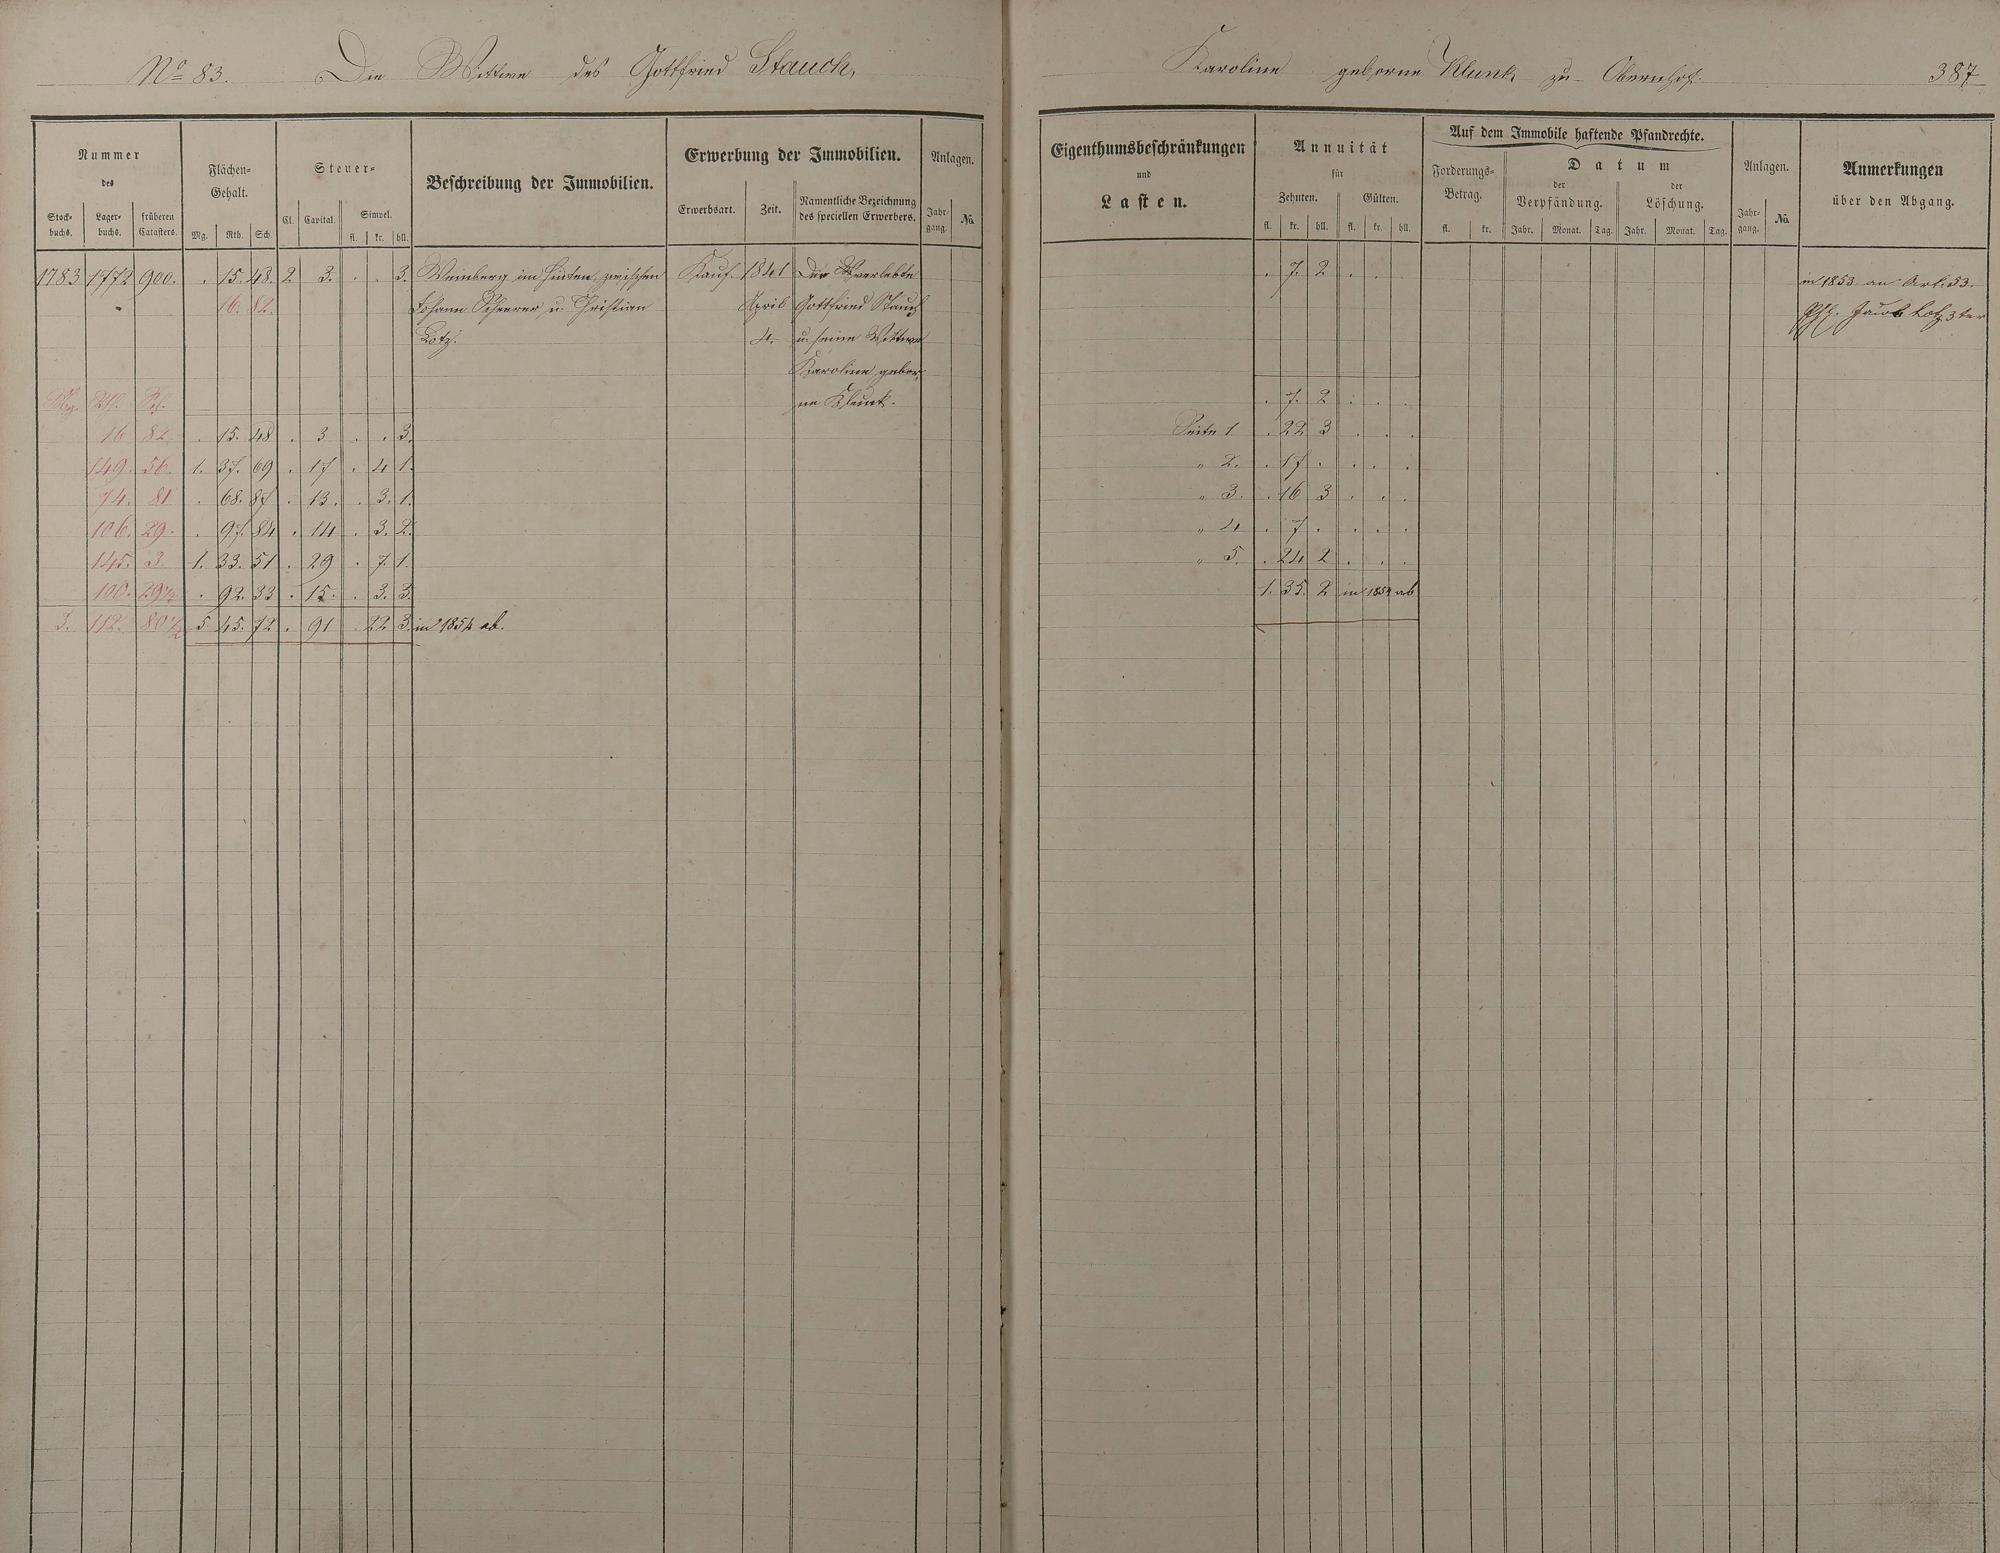 No 83. Die Wittwe des Gottfried Stauch, Karoline geborne Klunk zu Obernhof. 387
Nummer
des
Stock-
buchs.
Lager-
buchs.
früheren
Catasters.
Flächen-
Gehalt.
Mg. Rth. Sch.
Steuer-
Cl. Capital.
Simpel.
fl. kr. hll.
Beschreibung der Immobilien.
Erwerbung der Immobilien.
Erwerbsart. Zeit.
Namentliche Bezeichnung
des speciellen Erwerbers.
Anlagen.
Jahr-
gang.
No.
Eigenthumsbeschränkungen
und
Lasten.
Annuität
für
Zehnten. Gülten.
fl. kr. hll. fl. kr. hll.
Auf dem Immobile haftende Pfandrechte.
Forderungs-
Betrag.
fl. kr.
Datum
der
Verpfändung.
Jahr. Monat. Tag.
der
Löschung.
Jahr. Monat. Tag.
Anlagen.
Jahr-
gang.
No.
Anmerkungen
über den Abgang.
1783 1772 900. . 15. 48. 2 3. . . 3. Weinberg im zwischen Kauf. 1841 Der Verlebte . 7. 2 . . . in 1853 an Art. 53.
16. 82. Johann Scheerer u. Christian April Gottfried Stauch Jacob Lotz 3ter
Lotz. 4. u. seine Wittwe
Karoline gebor,
Mg. Rth. Sch. ne Klunk. . 7. 2 . . .
16 82. . 15. 48 . 3 . . 3. Seite 1 . 22 3 . . .
149. 56. 1. 37. 69 . 17 . 4 1. " 2. . 17 . . . .
74. 81 . 68. 87 . 13. . 3. 1. " 3. . 16 3 . . .
106. 29. . 97. 84 . 14 . 3. 2. " 4 . 7 . . . .
145. 3. 1. 33. 51 . 29 . 7. 1. " 5. . 24 2 . . .
100. 29½ . 92. 33 . 15. . 3. 3. 1. 35. 2 in 1854 ab
3. 112. 80½ 5 45. 72 . 91 . 22 3. in 1854 ab.